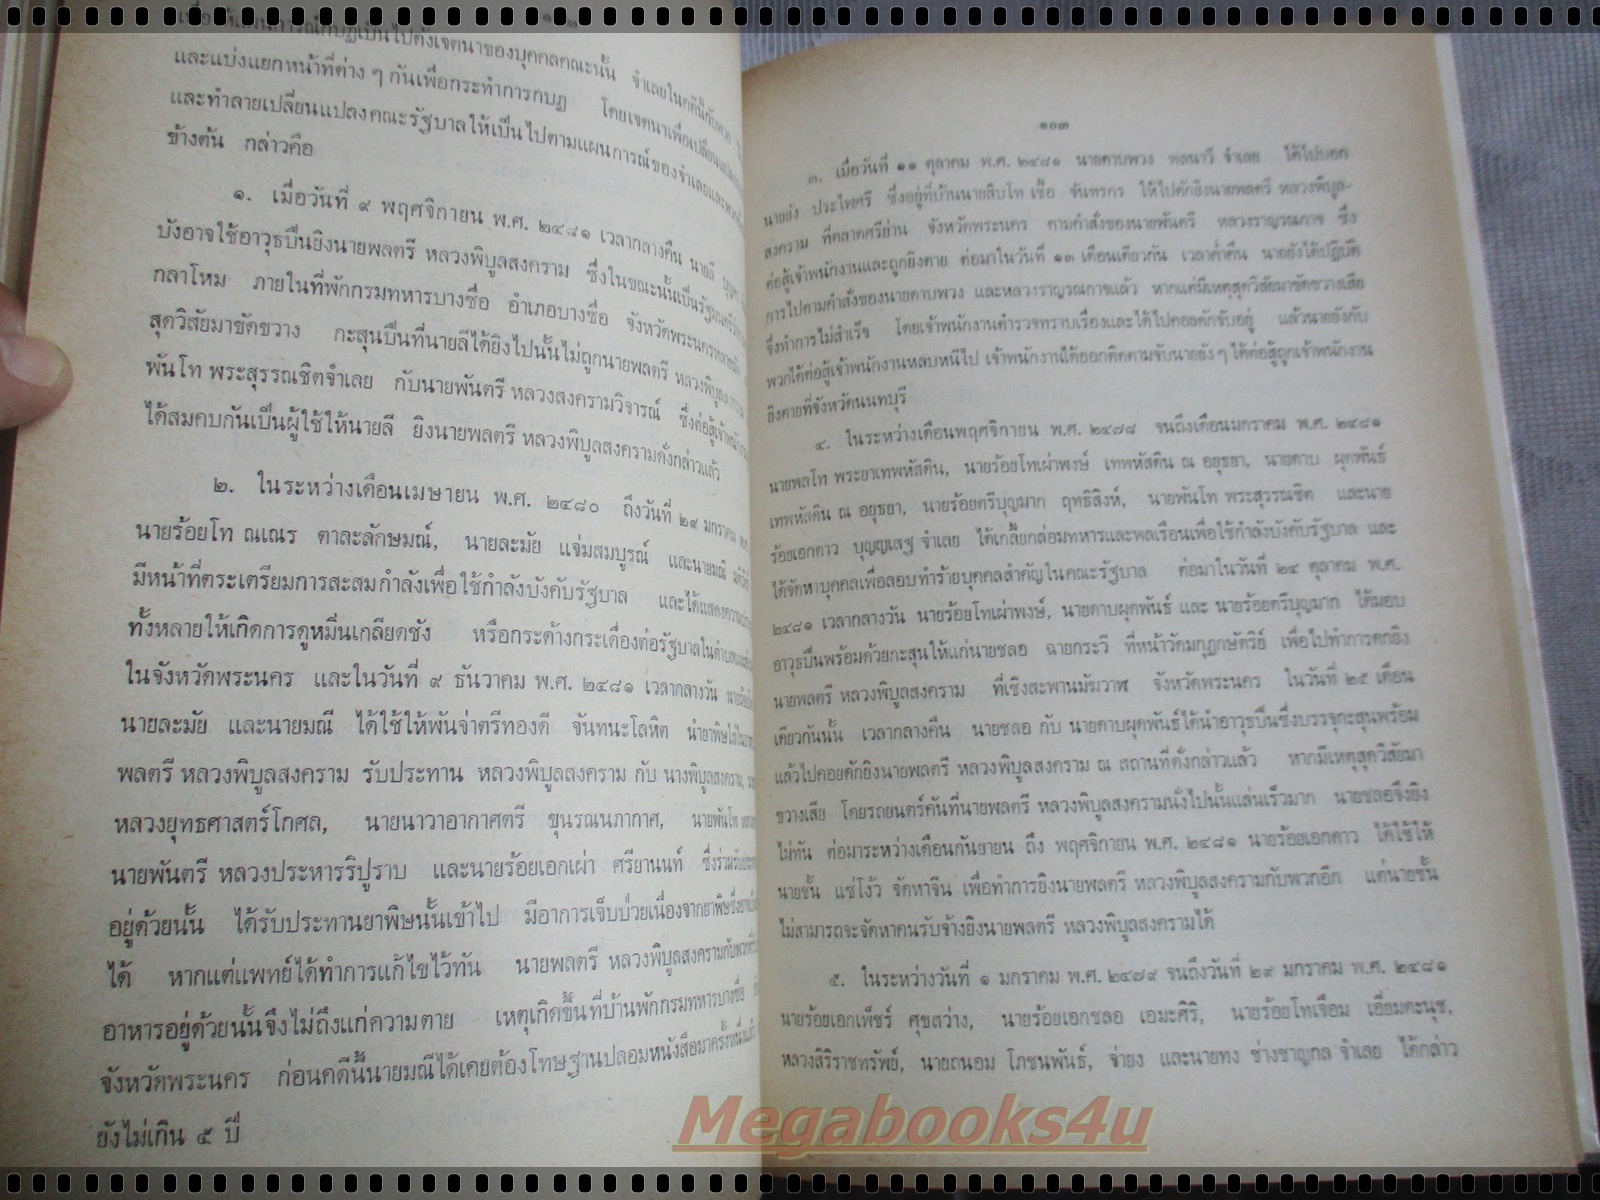 ๑๐๒
เพื่อให้แผนการณ์กบฏเป็นไปดังเจตนาของบุคคลคณะนั้น จำเลยในคดีนี้กับพวก
และแบ่งแยกหน้าที่ต่าง ๆ กันเพื่อกระทำการกบฏ โดยเจตนาเพื่อเปลี่ยนแปลง
และทำลายเปลี่ยนแปลงคณะรัฐบาลให้เป็นไปตามแผนการณ์ของจำเลยและพวก
ข้างต้น กล่าวคือ
๑. เมื่อวันที่ ๙ พฤศจิกายน พ.ศ. ๒๔๘๑ เวลากลางคืน นายลี บุญตา
บังอาจใช้อาวุธปืนยิงนายพลตรี หลวงพิบูลสงคราม ซึ่งในขณะนั้นเป็นรัฐมนตรี
กลาโหม ภายในที่พักกรมทหารบางซื่อ อำเภอบางซื่อ จังหวัดพระนคร
สุดวิสัยมาขัดขวาง กะสุนปืนที่นายลีได้ยิงไปนั้นไม่ถูกนายพลตรี หลวงพิบูลสงคราม
พันโท พระสุรรณชิตจำเลย กับนายพันตรี หลวงสงครามวิจารณ์ ซึ่งต่อสู้เจ้าพนักงาน
ได้สมคบกันเป็นผู้ใช้ให้นายลี ยิงนายพลตรี หลวงพิบูลสงครามดั่งกล่าวแล้ว
๒. ในระหว่างเดือนเมษายน พ.ศ. ๒๔๘๐ ถึงวันที่ ๒๙ มกราคม พ.ศ.
นายร้อยโท ณเณร ตาละลักษมณ์, นายละมัย แจ่มสมบูรณ์ และนายมณี
มีหน้าที่ตระเตรียมการสะสมกำลังเพื่อใช้กำลังบังคับรัฐบาล และได้แสดงความ
ทั้งหลายให้เกิดการดูหมิ่นเกลียดชัง หรือกระด้างกระเดื่องต่อรัฐบาลในตำบล
ในจังหวัดพระนคร และในวันที่ ๙ ธันวาคม พ.ศ. ๒๔๘๑ เวลากลางวัน
นายละมัย และนายมณี ได้ใช้ให้พันจ่าตรีทองดี จันทนะโลหิต นำยาพิษ
พลตรี หลวงพิบูลสงคราม รับประทาน หลวงพิบูลสงคราม กับ นางพิบูลสงคราม,
หลวงยุทธศาสตร์โกศล, นายนาวาอากาศตรี ขุนรณนภากาศ, นายพันโท
นายพันตรี หลวงประหารริปูราบ และนายร้อยเอกเผ่า ศรียานนท์ ซึ่งร่วมรับประทาน
อยู่ด้วยนั้น ได้รับประทานยาพิษนั้นเข้าไป มีอาการเจ็บป่วยเนื่องจากยาพิษ
ได้ หากแต่แพทย์ได้ทำการแก้ไขไว้ทัน นายพลตรี หลวงพิบูลสงครามกับพวก
อาหารอยู่ด้วยนั้นจึงไม่ถึงแก่ความตาย เหตุเกิดขึ้นที่บ้านพักกรมทหารบางซื่อ
จังหวัดพระนคร ก่อนคดีนี้นายมณีได้เคยต้องโทษฐานปลอมหนังสือมาครั้งหนึ่งแล้ว
ยังไม่เกิน ๕ ปี
๑๐๓
๓. เมื่อวันที่ ๑๑ ตุลาคม พ.ศ. ๒๔๘๑ นายดาบพวง พลนาวี จำเลย ได้ไปบอก
นายยัง ประไพศรี ซึ่งอยู่ที่บ้านนายสิบโท เชื้อ จันทรกร ให้ไปดักยิงนายพลตรี หลวงพิบูล-
สงคราม ที่ตลาดศรีย่าน จังหวัดพระนคร ตามคำสั่งของนายพันตรี หลวงราญรณกาจ ซึ่ง
ต่อสู้เจ้าพนักงานและถูกยิงตาย ต่อมาในวันที่ ๑๓ เดือนเดียวกัน เวลาค่ำคืน นายยังได้ปฏิบัติ
การไปตามคำสั่งของนายดาบพวง และหลวงราญรณกาจแล้ว หากแต่มีเหตุสุดวิสัยมาขัดขวางเสีย
จึงทำการไม่สำเร็จ โดยเจ้าพนักงานตำรวจทราบเรื่องและได้ไปคอยดักจับอยู่ แล้วนายยังกับ
พวกได้ต่อสู้เจ้าพนักงานหลบหนีไป เจ้าพนักงานได้ออกติดตามจับนายยัง ๆ ได้ต่อสู้ถูกเจ้าพนักงาน
ยิงตายที่จังหวัดนนทบุรี
๔. ในระหว่างเดือนพฤศจิกายน พ.ศ. ๒๔๗๘ จนถึงเดือนมกราคม พ.ศ. ๒๔๘๑
นายพลโท พระยาเทพหัสดิน, นายร้อยโทเผ่าพงษ์ เทพหัสดิน ณ อยุธยา, นายดาบ ผุดพันธ์
เทพหัสดิน ณ อยุธยา, นายร้อยตรีบุญมาก ฤทธิสิงห์, นายพันโท พระสุรรณชิต และนาย
ร้อยเอกดาว บุญญเสฐ จำเลย ได้เกลี้ยกล่อมทหารและพลเรือนเพื่อใช้กำลังบังคับรัฐบาล และ
ได้จัดหาบุคคลเพื่อลอบทำร้ายบุคคลสำคัญในคณะรัฐบาล ต่อมาในวันที่ ๒๔ ตุลาคม พ.ศ.
๒๔๘๑ เวลากลางวัน นายร้อยโทเผ่าพงษ์, นายดาบผุดพันธ์ และ นายร้อยตรีบุญมาก ได้มอบ
อาวุธปืนพร้อมด้วยกะสุนให้แก่นายชลอ ฉายกระวี ที่หน้าวัดมกุฎกษัตริย์ เพื่อไปทำการดักยิง
นายพลตรี หลวงพิบูลสงคราม ที่เชิงสะพานมัฆวาฬ จังหวัดพระนคร ในวันที่ ๒๕ เดือน
เดียวกันนั้น เวลากลางคืน นายชลอ กับ นายดาบผุดพันธ์ได้นำอาวุธปืนซึ่งบรรจุกะสุนพร้อม
แล้วไปคอยดักยิงนายพลตรี หลวงพิบูลสงคราม ณ สถานที่ดั่งกล่าวแล้ว หากมีเหตุสุดวิสัยมา
ขวางเสีย โดยรถยนตร์คันที่นายพลตรี หลวงพิบูลสงครามนั่งไปนั้นแล่นเร็วมาก นายชลอจึงยิง
ไม่ทัน ต่อมาระหว่างเดือนกันยายน ถึง พฤศจิกายน พ.ศ. ๒๔๘๑ นายร้อยเอกดาว ได้ใช้ให้
นายชั้น แซ่โง้ว จัดหาจีน เพื่อทำการยิงนายพลตรี หลวงพิบูลสงครามกับพวกอีก แต่นายชั้น
ไม่สามารถจะจัดหาคนรับจ้างยิงนายพลตรี หลวงพิบูลสงครามได้
๕. ในระหว่างวันที่ ๑ มกราคม พ.ศ. ๒๔๗๙ จนถึงวันที่ ๒๙ มกราคม พ.ศ. ๒๔๘๑
นายร้อยเอกเพ็ชร์ ศุขสว่าง, นายร้อยเอกชลอ เอมะศิริ, นายร้อยโทเจือม เอี่ยมตะนุช,
หลวงสิริราชทรัพย์, นายถนอม โภชนพันธ์, จ่ายง และนายทง ช่างชาญกล จำเลย ได้กล่าว
Megabooks4u